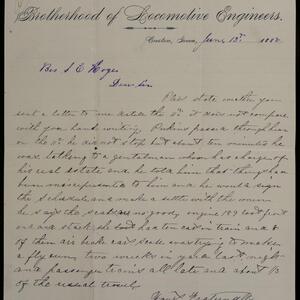 Brotherhood of Locomotive Engineers.
Creston, Iowa, June 13th 1888
Bro S. E. Hoge
Dear Sir
Please state whether you
sent a letter to me as it does not compare
with your hand writing. Perkins passed through here
on the he did not stop but about ten minutes he
was talking to a gentleman whom has charge of
his real estate and he told him that things had
been misrepresented to him and he would sign
the Schedule, and make a settle with the men
he says the scabs are no good, engine 189 lost part
one and stack. she had ten cars in train and 8
of them air brake cars scabs was trying to make
a fly run, two wrecks in yard last night
and passenger trains all late and about 1/3
of the usual travel.
Yours Fraternally